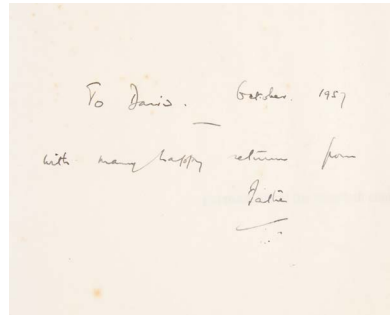 To David. October. 1957
with many happy returns from
Father